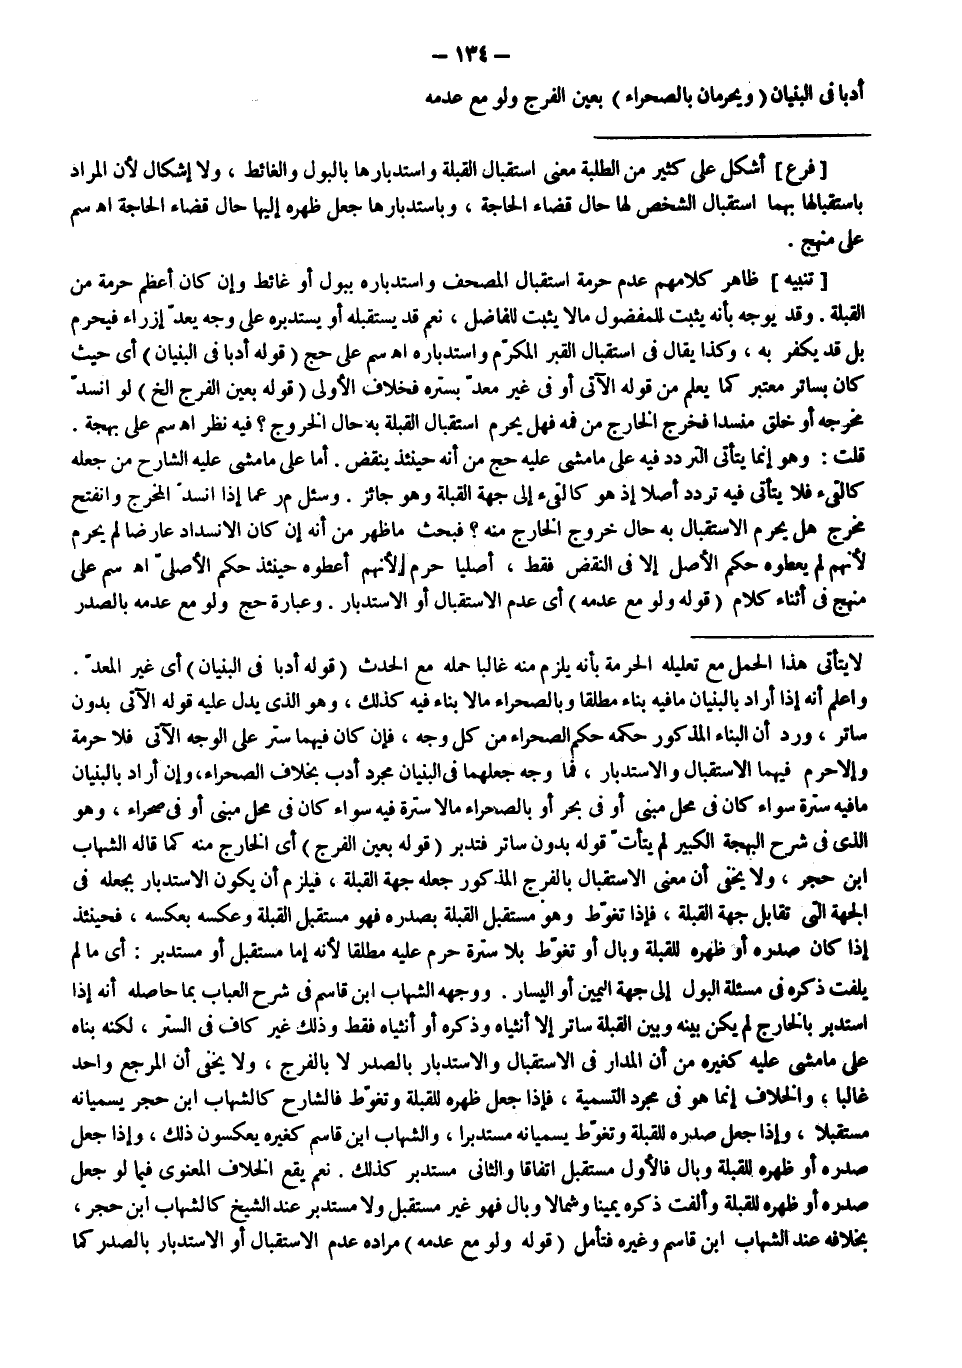 – ١٣٤ –
أدبا فى البنيان ( ويحرمان بالصحراء ) بعين الفرج ولو مع عدمه
[ فرع ] أشكل على كثير من الطلبة معنى استقبال القبلة واستدبارها بالبول والغائط ، ولا إشكال لأن المراد
باستقبالها بهما استقبال الشخص لها حال قضاء الحاجة ، وباستدبارها جعل ظهره إليها حال قضاء الحاجة اه سم
على منهج .
[ تنبيه ] ظاهر كلامهم عدم حرمة استقبال المصحف واستدباره ببول أو غائط وإن كان أعظم حرمة من
القبلة . وقد يوجه بأنه يثبت للمفضول مالا يثبت للفاضل ، نعم قد يستقبله أو يستدبره على وجه يعدّ إزراء فيحرم
بل قد يكفر به ، وكذا يقال فى استقبال القبر المكرّم واستدباره اه سم على حج ( قوله أدبا فى البنيان ) أى حيث
كان بساتر معتبر كما يعلم من قوله الآتى أو فى غير معدّ بستره فخلاف الأولى ( قوله بعين الفرج الخ ) لو انسدّ
مخرجه أو خلق منسدا فخرج الخارج من فمه فهل يحرم استقبال القبلة به حال الخروج ؟ فيه نظر اه سم على بهجة .
قلت : وهو إنما يتأتى التردد فيه على مامشى عليه حج من أنه حينئذ ينقض . أما على مامشى عليه الشارح من جعله
كالقىء فلا يتأتى فيه تردد أصلا إذ هو كالقىء إلى جهة القبلة وهو جائز . وسئل مر عما إذا انسدّ المخرج وانفتح
مخرج هل يحرم الاستقبال به حال خروج الخارج منه ؟ فبحث ماظهر من أنه إن كان الانسداد عارضا لم يحرم
لأنهم لم يعطوه حكم الأصل إلا فى النقض فقط ، أصليا حرم لأنهم أعطوه حينئذ حكم الأصلىّ اه سم على
منهج فى أثناء كلام ( قوله ولو مع عدمه ) أى عدم الاستقبال أو الاستدبار . وعبارة حج ولو مع عدمه بالصدر
لايتأتى هذا الحمل مع تعليله الحرمة بأنه يلزم منه غالبا حمله مع الحدث ( قوله أدبا فى البنيان ) أى غير المعدّ .
واعلم أنه إذا أراد بالبنيان مافيه بناء مطلقا وبالصحراء مالا بناء فيه كذلك ، وهو الذى يدل عليه قوله الآتى بدون
ساتر ، ورد أن البناء المذكور حكمه حكم الصحراء من كل وجه ، فإن كان فيهما ستر على الوجه الآتى فلا حرمة
وإلا حرم فيهما الاستقبال والاستدبار ، فما وجه جعلهما فى البنيان مجرد أدب بخلاف الصحراء ، وإن أراد بالبنيان
مافيه سترة سواء كان فى محل مبنى أو فى بحر أو بالصحراء مالا سترة فيه سواء كان فى محل مبنى أو فى صحراء ، وهو
الذى فى شرح البهجة الكبير لم يتأتّ قوله بدون ساتر فتدبر ( قوله بعين الفرج ) أى الخارج منه كما قاله الشهاب
ابن حجر ، ولا يخفى أن معنى الاستقبال بالفرج المذكور جعله جهة القبلة ، فيلزم أن يكون الاستدبار بجعله فى
الجهة التى تقابل جهة القبلة ، فإذا تغوّط وهو مستقبل القبلة بصدره فهو مستقبل القبلة وعكسه بعكسه ، فحينئذ
إذا كان صدره أو ظهره للقبلة وبال أو تغوّط بلا سترة حرم عليه مطلقا لأنه إما مستقبل أو مستدبر : أى ما لم
يلفت ذكره فى مسئلة البول إلى جهة اليمين أو اليسار . ووجهه الشهاب ابن قاسم فى شرح العباب بما حاصله أنه إذا
استدبر بالخارج لم يكن بينه وبين القبلة ساتر إلا أنثياه وذكره أو أنثياه فقط وذلك غير كاف فى الستر ، لكنه بناه
على مامشى عليه كغيره من أن المدار فى الاستقبال والاستدبار بالصدر لا بالفرج ، ولا يخفى أن المرجع واحد
غالبا ، والخلاف إنما هو فى مجرد التسمية ، فإذا جعل ظهره للقبلة وتغوّط فالشارح كالشهاب ابن حجر يسميانه
مستقبلا ، وإذا جعل صدره للقبلة وتغوّط يسميانه مستدبرا ، والشهاب ابن قاسم كغيره يعكسون ذلك ، وإذا جعل
صدره أو ظهره للقبلة وبال فالأول مستقبل اتفاقا والثانى مستدبر كذلك . نعم يقع الخلاف المعنوى فيما لو جعل
صدره أو ظهره للقبلة وألفت ذكره يمينا وشمالا وبال فهو غير مستقبل ولا مستدبر عند الشيخ كالشهاب ابن حجر ،
بخلافه عند الشهاب ابن قاسم وغيره فتأمل ( قوله ولو مع عدمه ) مراده عدم الاستقبال أو الاستدبار بالصدر كما